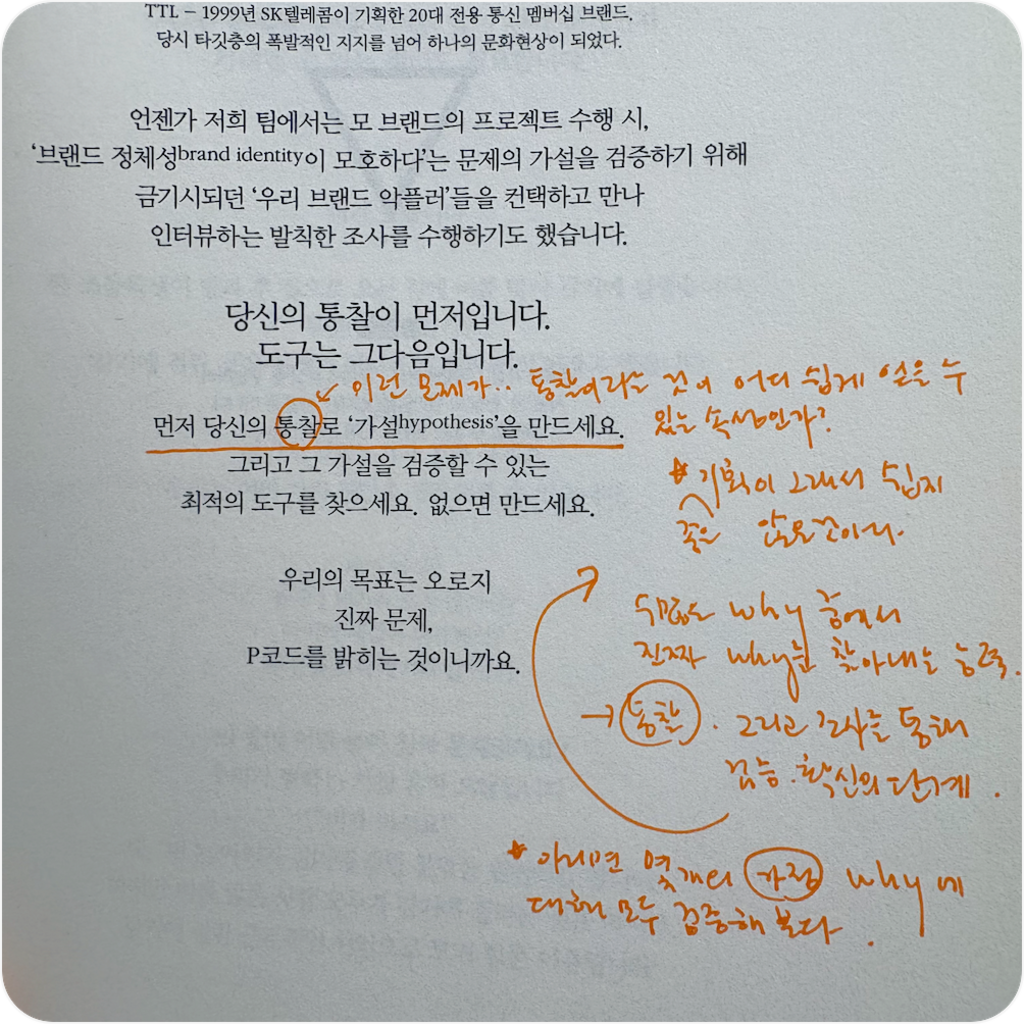 TTL – 1999년 SK텔레콤이 기획한 20대 전용 통신 멤버십 브랜드.
당시 타깃층의 폭발적인 지지를 넘어 하나의 문화현상이 되었다.
언젠가 저희 팀에서는 모 브랜드의 프로젝트 수행 시,
‘브랜드 정체성brand identity이 모호하다’는 문제의 가설을 검증하기 위해
금기시되던 ‘우리 브랜드 악플러’들을 컨택하고 만나
인터뷰하는 발칙한 조사를 수행하기도 했습니다.
당신의 통찰이 먼저입니다.
도구는 그다음입니다.
이런 모제가.. 통찰이라는 것이 어디 쉽게 얻을 수
있는 속성인가?
먼저 당신의 통찰로 ‘가설hypothesis’을 만드세요.
그리고 그 가설을 검증할 수 있는
최적의 도구를 찾으세요. 없으면 만드세요.
* 기획이 그래서 쉽지
좋은 않은것이다.
우리의 목표는 오로지
진짜 문제,
P코드를 밝히는 것이니까요.
수많은 why 중에서
진짜 why를 찾아내는 능력.
→ 통찰. 그리고 조사를 통해
검증. 확신의 단계.
* 아니면 몇개의 가정 why에
대해 모두 검증해 본다.